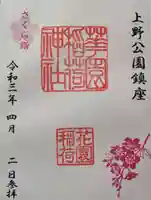 上野公園鎮座
園
稲荷
神社
花園
稲荷
さくら詣
令和三年 四月 二日参拝